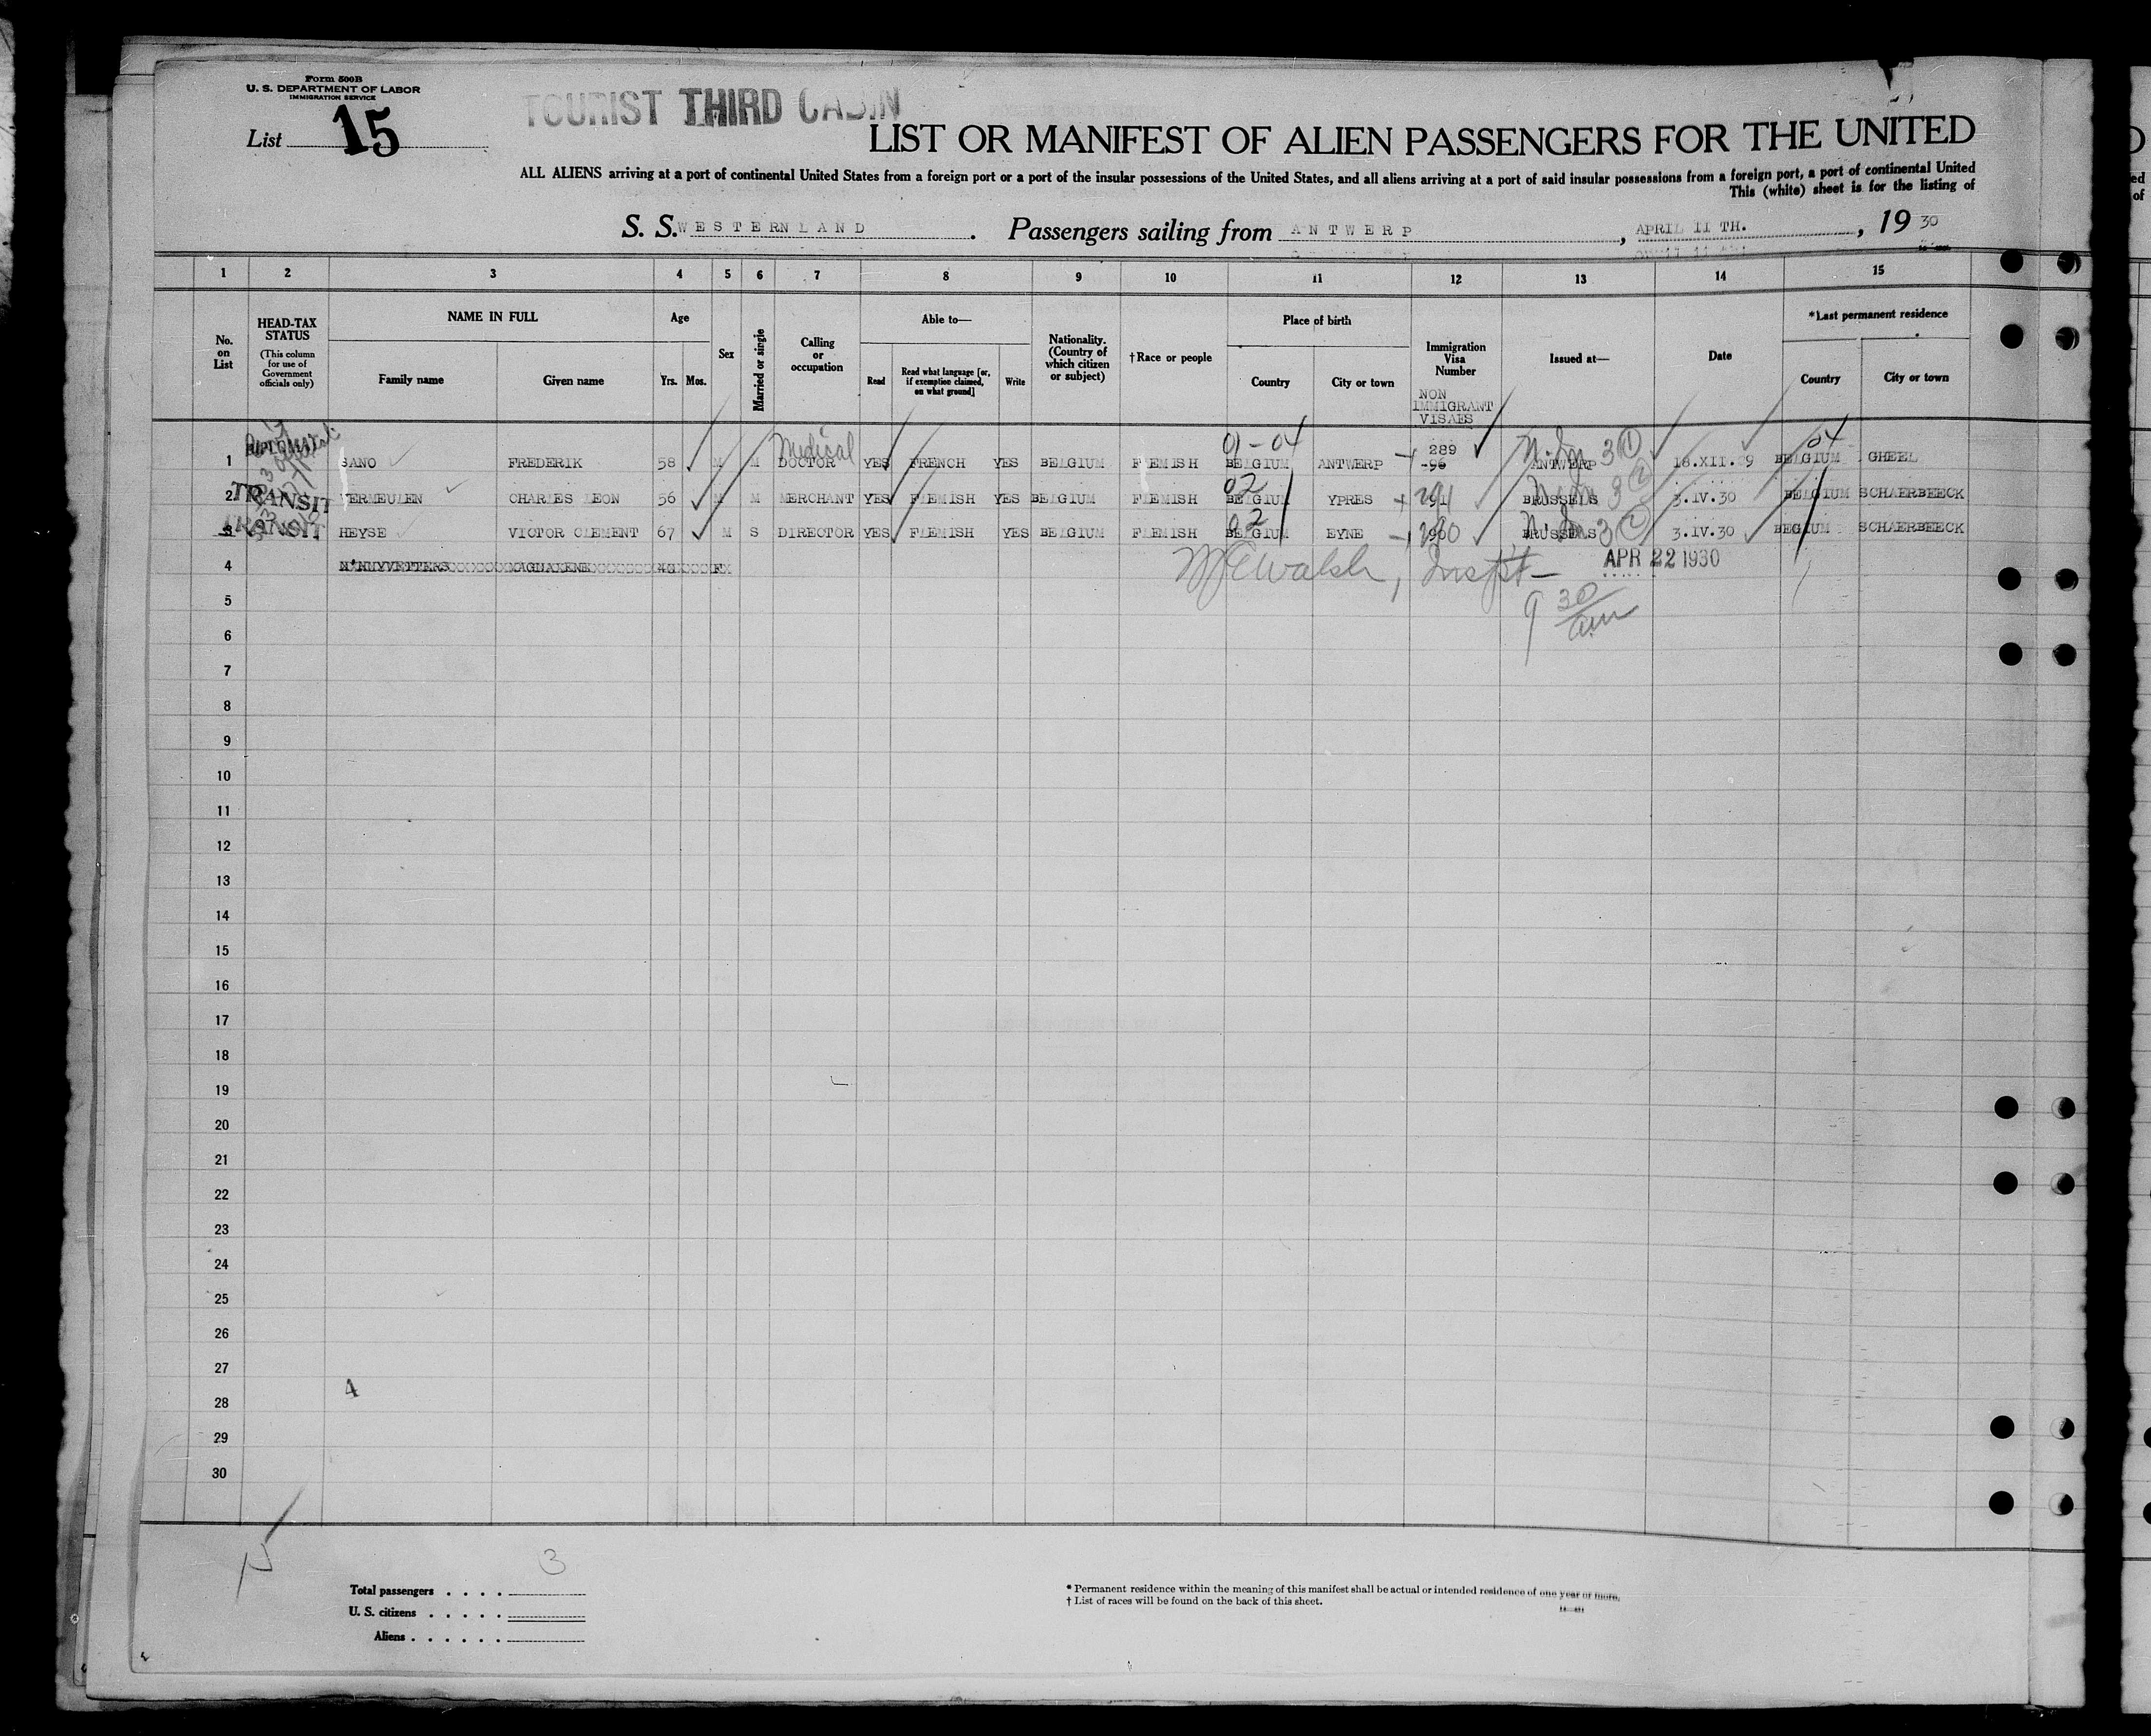 Form 500B
U. S. DEPARTMENT OF LABOR
IMMIGRATION SERVICE
List 15
TOURIST THIRD CABIN
LIST OR MANIFEST OF ALIEN PASSENGERS FOR THE UNITED
ALL ALIENS arriving at a port of continental United States from a foreign port or a port of the insular possessions of the United States, and all aliens arriving at a port of said insular possessions from a foreign port, a port of continental United
This (white) sheet is for the listing of
S. S. WESTERNLAND. Passengers sailing from ANTWERP, APRIL 11 TH., 1930
1 2 3 4 5 6 7 8 9 10 11 12 13 14 15
No. on List
HEAD-TAX STATUS (This column for use of Government officials only)
NAME IN FULL
Family name Given name
Age
Yrs. Mos.
Sex
Married or single
Calling or occupation
Able to—
Read Read what language [or, if exemption claimed, on what ground] Write
Nationality. (Country of which citizen or subject)
†Race or people
Place of birth
Country City or town
Immigration Visa Number
NON IMMIGRANT VISAES
Issued at—
Date
*Last permanent residence
Country City or town
Medical 01-04 289 04
1 DIPLOMAT SANO FREDERIK 58 M M DOCTOR YES FRENCH YES BELGIUM FLEMISH BELGIUM ANTWERP -96 ANTWERP 18.XII.29 BELGIUM GHEEL
02
2 TRANSIT VERMEULEN CHARLES LEON 56 M M MERCHANT YES FLEMISH YES BELGIUM FLEMISH BELGIUM YPRES BRUSSELS 3.IV.30 BELGIUM SCHAERBEECK
02
3 TRANSIT HEYSE VICTOR CLEMENT 67 M S DIRECTOR YES FLEMISH YES BELGIUM FLEMISH BELGIUM EYNE BRUSSELS 3.IV.30 BEGIUM SCHAERBEECK
4 Walsh, Inspt- APR 22 1930
9 30 am
5
6
7
8
9
10
11
12
13
14
15
16
17
18
19
20
21
22
23
24
25
26
27
4
28
29
30
3
Total passengers
U. S. citizens
Aliens
* Permanent residence within the meaning of this manifest shall be actual or intended residence of one year or more.
† List of races will be found on the back of this sheet.